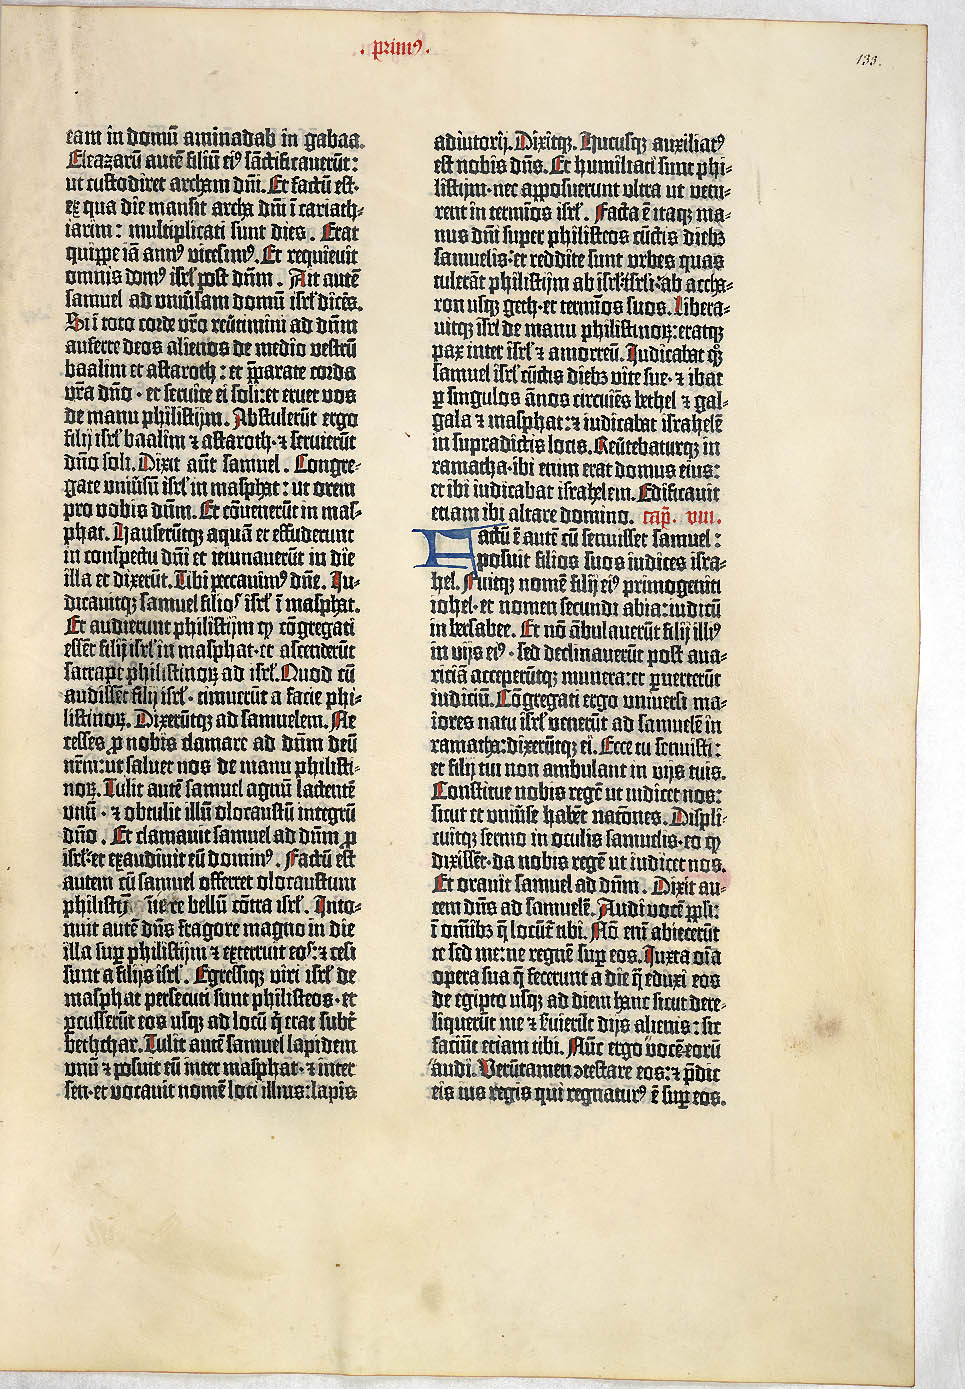 . primꝰ .
133.
eam in domū aminadab in gabaa.
Eleazarū autē filiū eiꝰ sāctificauerūt:
ut custodiret archam dn̄i. Et factū est·
ex qua die mansit archa dn̄i ī cariath-
iarim: multiplicati sunt dies. Erat
quippe iā annꝰ vicesimꝰ. Et requieuit
omnis domꝰ isrl' post dn̄m. Ait autē
samuel ad uniūsam domū isrl' dicēs.
Si ī toto corde vr̄o reūtimini ad dn̄m
auferte deos alienos de medio vestrū
baalim et astaroth: et p̄parate corda
vr̄a dn̄o · et seruite ei soli: et eruet vos
de manu philistijm. Abstulerūt ergo
filij isrl' baalim ⁊ astaroth·⁊ seruierūt
dn̄o soli. Dixit aūt samuel. Congre-
gate uniūsū isrl' in masphat: ut orem
pro vobis dn̄m. Et cōuenerūt in mas-
phat. Hauserūtqꝫ aquā et effuderunt
in conspectu dn̄i et ieiunauerūt in die
illa et dixerūt. Tibi peccauimꝰ dn̄e. Iu-
dicauitqꝫ samuel filios isrl' ī masphat.
Et audierunt philistijm ꝙ cōgregati
essēt filij isrl' in masphat·et ascenderūt
satrape philistinoꝝ ad isrl'. Quod cū
audissēt filij isrl'· timuerūt a facie phi-
listinoꝝ. Dixerūtqꝫ ad samuelem. Ne
cesses ꝓ nobis clamare ad dn̄m deū
nr̄m: ut saluet nos de manu philisti-
noꝝ. Tulit autē samuel agnū lactentē
unū · ⁊ obtulit illū olocaustū integrū
dn̄o . Et clamauit samuel ad dn̄m ꝓ
isrl'·et exaudiuit eū dominꝰ. Factū est
autem cū samuel offerret olocaustum
philistijm īire bellū cōtra isrl'. Into-
nuit autē dn̄s fragore magno in die
illa suꝑ philistijm ⁊ exterruit eos:⁊ cesi
sunt a filijs isrl'. Egressiqꝫ viri isrl' de
masphat persecuti sunt philisteos·et
ꝑcusserūt eos usqꝫ ad locū q̄ erat subt̄
bethchar. Tulit autē samuel lapidem
unū ⁊ posuit eū inter masphat·⁊ inter
sen·et vocauit nomē loci illius: lapis
adiutorij. Dixitqꝫ. Hucusqꝫ auxiliatꝰ
est nobis dn̄s. Et humiliati sunt phi-
listijm·nec apposuerunt ultra ut veni-
rent in termīos isrl'. Facta ē itaqꝫ ma-
nus dn̄i super philisteos cūctis diebꝫ
samuelis: et reddite sunt urbes quas
tulerāt philistijm ab isrl' isrl'i·ab accha-
ron usqꝫ geth·et termīos suos. Libera-
uitqꝫ isrl' de manu philistinoꝝ: eratqꝫ
pax inter isrl' ⁊ amorreū. Iudicabat qꝫ
samuel isrl' cūctis diebꝫ vite sue·⁊ ibat
ꝑ singulos ānos circuiēs bethel ⁊ gal-
gala ⁊ masphat:⁊ iudicabat israhelē
in supradictis locis. Reūtebaturqꝫ in
ramatha·ibi enim erat domus eius:
et ibi iudicabat israhelem. Edificauit
etiam ibi altare domino. cap̄. viii.
Factū ē autē cū senuisset samuel:
posuit filios suos iudices isra-
hel. Fuitqꝫ nomē filij eiꝰ primogeniti
iohel·et nomen secundi abia: iudicū
in bersabee. Et nō ābulauerūt filij illiꝰ
in vijs eiꝰ · sed declinauerūt post aua-
riciā acceperūtqꝫ munera: et ꝑuerterūt
iudiciū. Cōgregati ergo universi ma-
iores natu isrl' venerūt ad samuelē in
ramatha: dixerūtqꝫ ei. Ecce tu senuisti:
et filij tui non ambulant in vijs tuis.
Constitue nobis regē ut iudicet nos:
sicut et uniūse habēt natōnes. Displi-
cuitqꝫ sermo in oculis samuelis·eo ꝙ
dixissēt·da nobis regē ut iudicet nos.
Et orauit samuel ad dn̄m. Dixit au-
tem dn̄s ad samuelē. Audi vocē ppl'i:
ī om̄ibꝫ q̄ locūt̄ tibi. Nō eni abiecerūt
te sed me: ne regnē suꝑ eos. Iuxta oīa
opera sua q̄ fecerunt a die q̄ eduxi eos
de egipto usqꝫ ad diem hanc sicut dere-
liquerūt me ⁊ s̄uierūt dijs alienis: sic
faciūt etiam tibi. Nūc ergo vocē eorū
audi. Verūtamen ↄtestare eos:⁊ p̄dic
eis ius regis qui regnaturꝰ ē suꝑ eos.